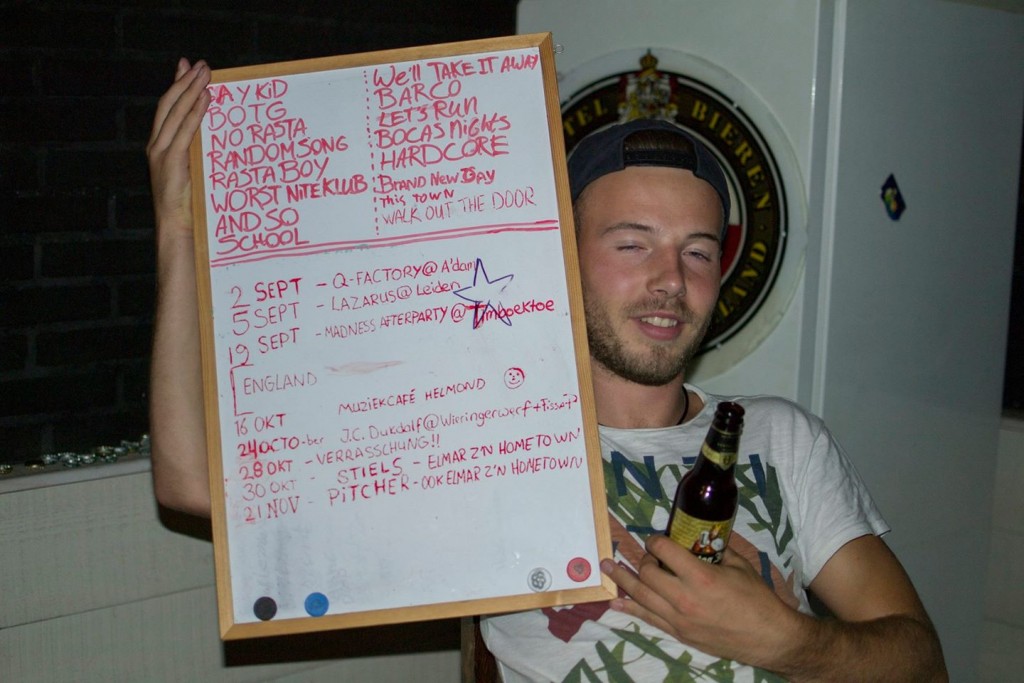 AY KID
BOTG
NO RASTA
RANDOM SONG
RASTA BOY
WORST NITEKLUB
AND SO
SCHOOL
We'll TAKE IT AWAY
BARCO
LET'S RUN
BOCAS Nights
HARDCORE
BRAND NEW DAY
this TOWN
WALK OUT THE DOOR
2 SEPT - Q-FACTORY@A'dam
5 SEPT - LAZARUS@Leiden
19 SEPT - MADNESS AFTERPARTY@Timboektoe
ENGLAND
16 OKT MUZIEKCAFÉ HELMOND
24 OCTO-ber J.C. Dukdalf@Wieringerwerf
28 OKT - VERRASSCHUNG!!
30 OKT - STIELS - ELMAR Z'N HOMETOWN'
21 NOV - PITCHER - OOK ELMAR Z'N HOMETOWN
TEL BIEREN
LAND